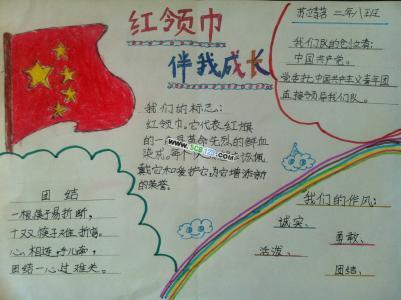 红领巾
伴我成长
二年八五班
我们队的创立者:
中国共产党。
党委托中国共产主义青年团
直接领导我们队。
我们的标志:
红领巾。它代表红旗
的一角,是革命先烈的鲜血
染成。每个
戴它和爱护它,为它增添新
的荣誉。
团结
一根筷子易折断,
十双筷子难折弯。
心相连,手儿牵,
团结一心过难关。
我们的作风:
诚实、
勇敢、
活泼、
团结、